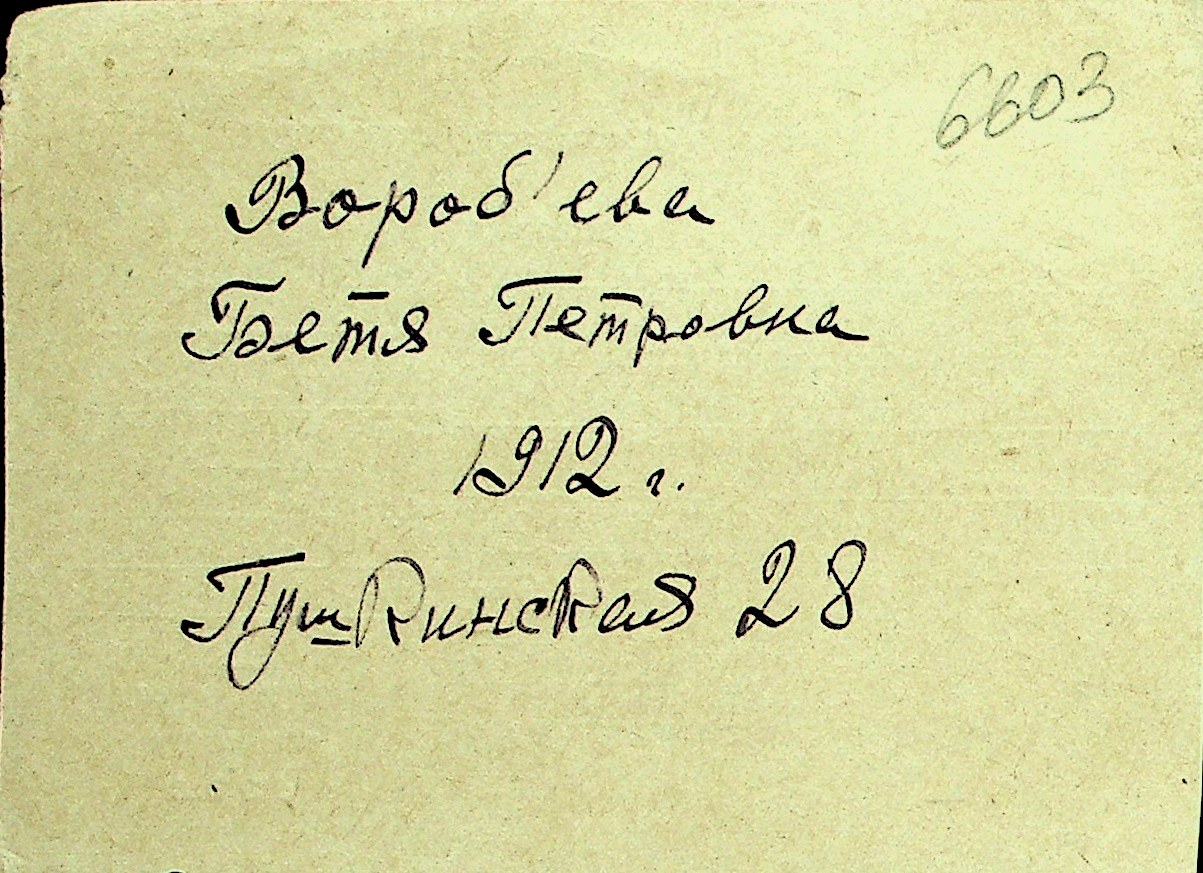 6603
Вороб'ева
Бетя Петровна
1912 г.
Пушкинская 28